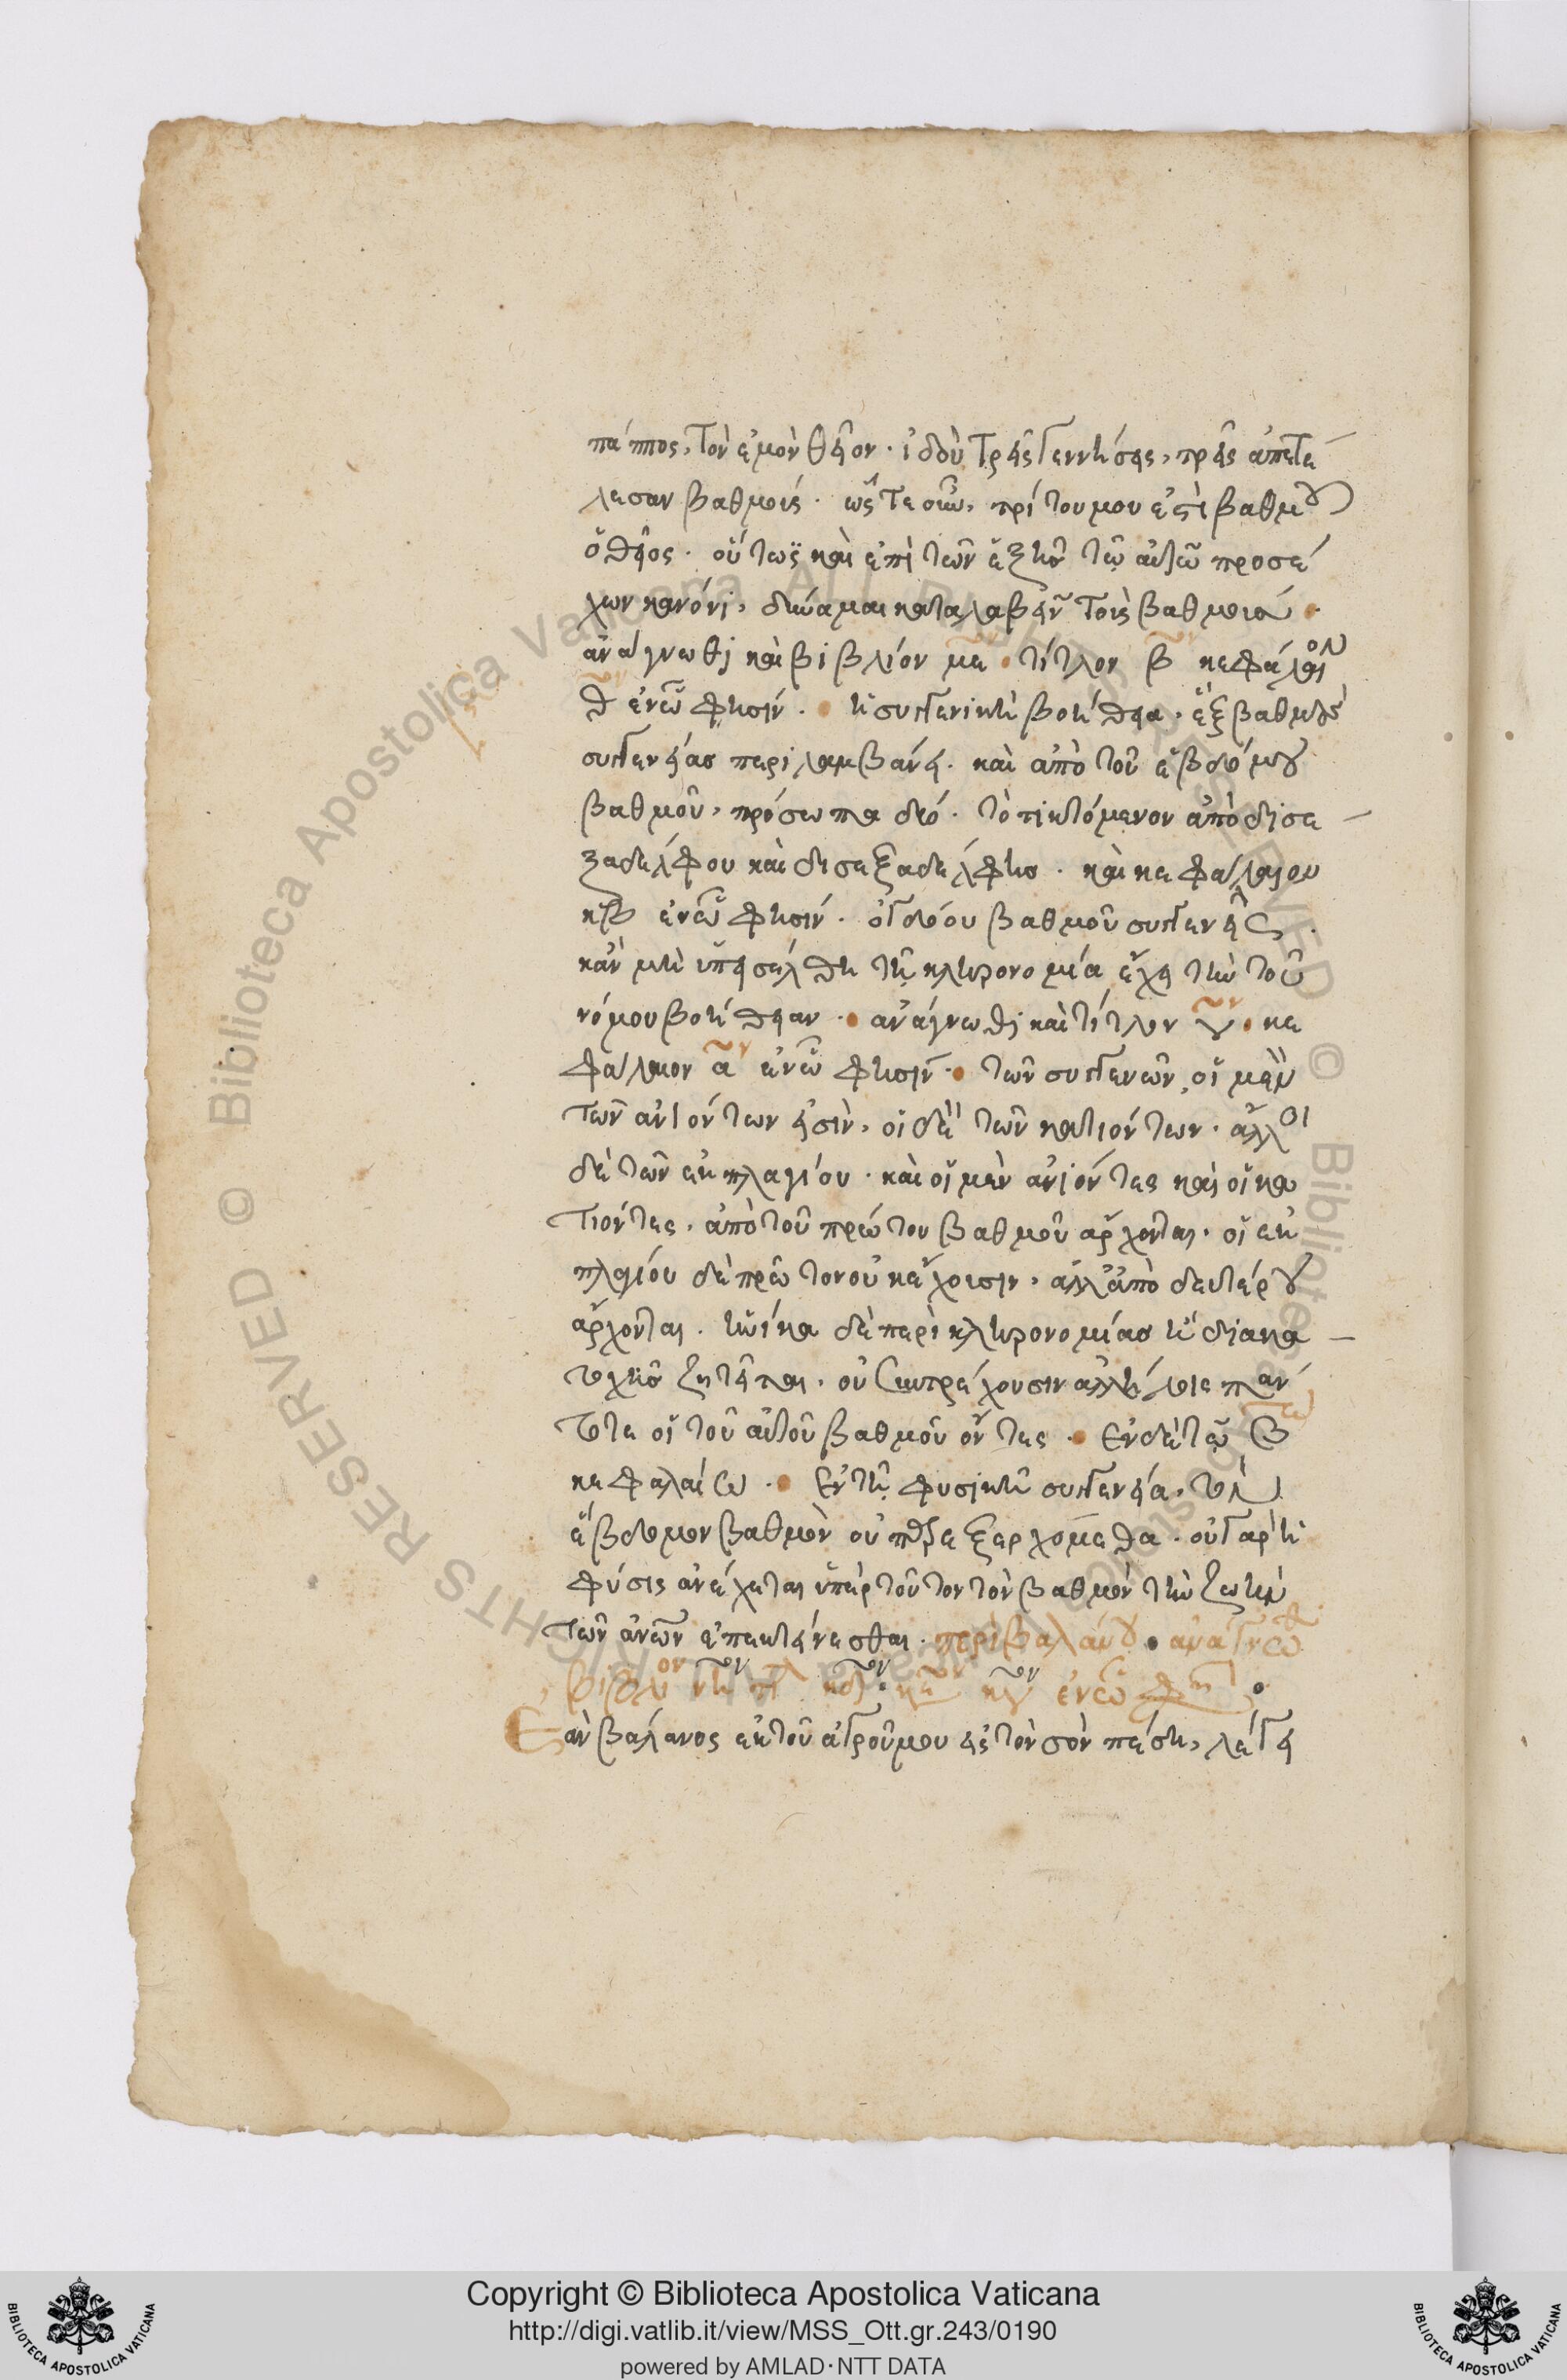 πάππος, τὸν ἐμὸν θεῖον· ἰδοὺ τρεῖς γεννήσεις, τρεῖς ἀπετέ
λεσαν βαθμούς· ὥστε οὖν, τρίτου μου ἐστὶ βαθμοῦ
ὁ θεῖος· οὕτως καὶ ἐπὶ τῶν ἑξῆς τῷ αὐτῷ προσέ
χων κανόνι, δύναμαι καταλαβεῖν τοὺς βαθμούς·
ἀνάγνωθι καὶ βιβλίον με τίτλον β κεφάλαιον
θ ἐν ᾧ φησίν· ἡ συγγενικὴ βοήθεια· ἓξ βαθμοὺς
συγγενείας περιλαμβάνει· καὶ ἀπὸ τοῦ ἑβδόμου
βαθμοῦ, πρόσωπα δύο· τὸ τικτόμενον ἀπὸ δισε
ξαδέλφου καὶ δισεξαδέλφης· καὶ κεφαλαίου
κβ ἐν ᾧ φησίν· ὀγδόου βαθμοῦ συγγενεῖς·
κἂν μὴ ὑπεισέλθη τῇ κληρονομία ἔχει τὴν τοῦ
νόμου βοήθειαν· ἀνάγνωθι καὶ τίτλον γ· κε
φάλαιον α ἐν ᾧ φησίν· τῶν συγγενῶν, οἱ μὲν
τῶν ἀνιόντων εἰσὶν, οἱ δὲ τῶν κατιόντων· ἄλλοι
δὲ τῶν ἐκ πλαγίου· καὶ οἱ μὲν ἀνιόντες καὶ οἱ κα
τιόντες, ἀπὸ τοῦ πρώτου βαθμοῦ ἄρχονται· οἱ ἐκ
πλαγίου δὲ πρῶτον οὐκ ἔχουσιν, ἀλλ' ἀπὸ δευτέρου
ἄρχονται· ἡνίκα δὲ περὶ κληρονομίας ἢ διακα
τοχῆς ζητεῖται, οὐ συντρέχουσιν ἀλλήλοις πάν
τοτε οἱ τοῦ αὐτοῦ βαθμοῦ ὄντες· ἐν δὲ τῷ β
κεφαλαίω· ἐν τῇ φυσικῇ συγγενεία, τὸν
ἕβδομον βαθμὸν οὐχ ὑπεξερχόμεθα· οὐ γὰρ ἡ
φύσις ἀνέχεται ὑπὲρ τοῦτον τὸν βαθμὸν τὴν ζωὴν
τῶν ἀνων ἐπεκτείνεσθαι· περὶ βαλάνου· ἀναγνωθ
βιβλίον ἐν ᾧ φη
Ἐὰν βάλανος ἐκ τοῦ ἀγροῦ μου εἰς τὸν σὸν πέση, λέγει
Copyright © Biblioteca Apostolica Vaticana
http://digi.vatlib.it/view/MSS_Ott.gr.243/0190
powered by AMLAD·NTT DATA